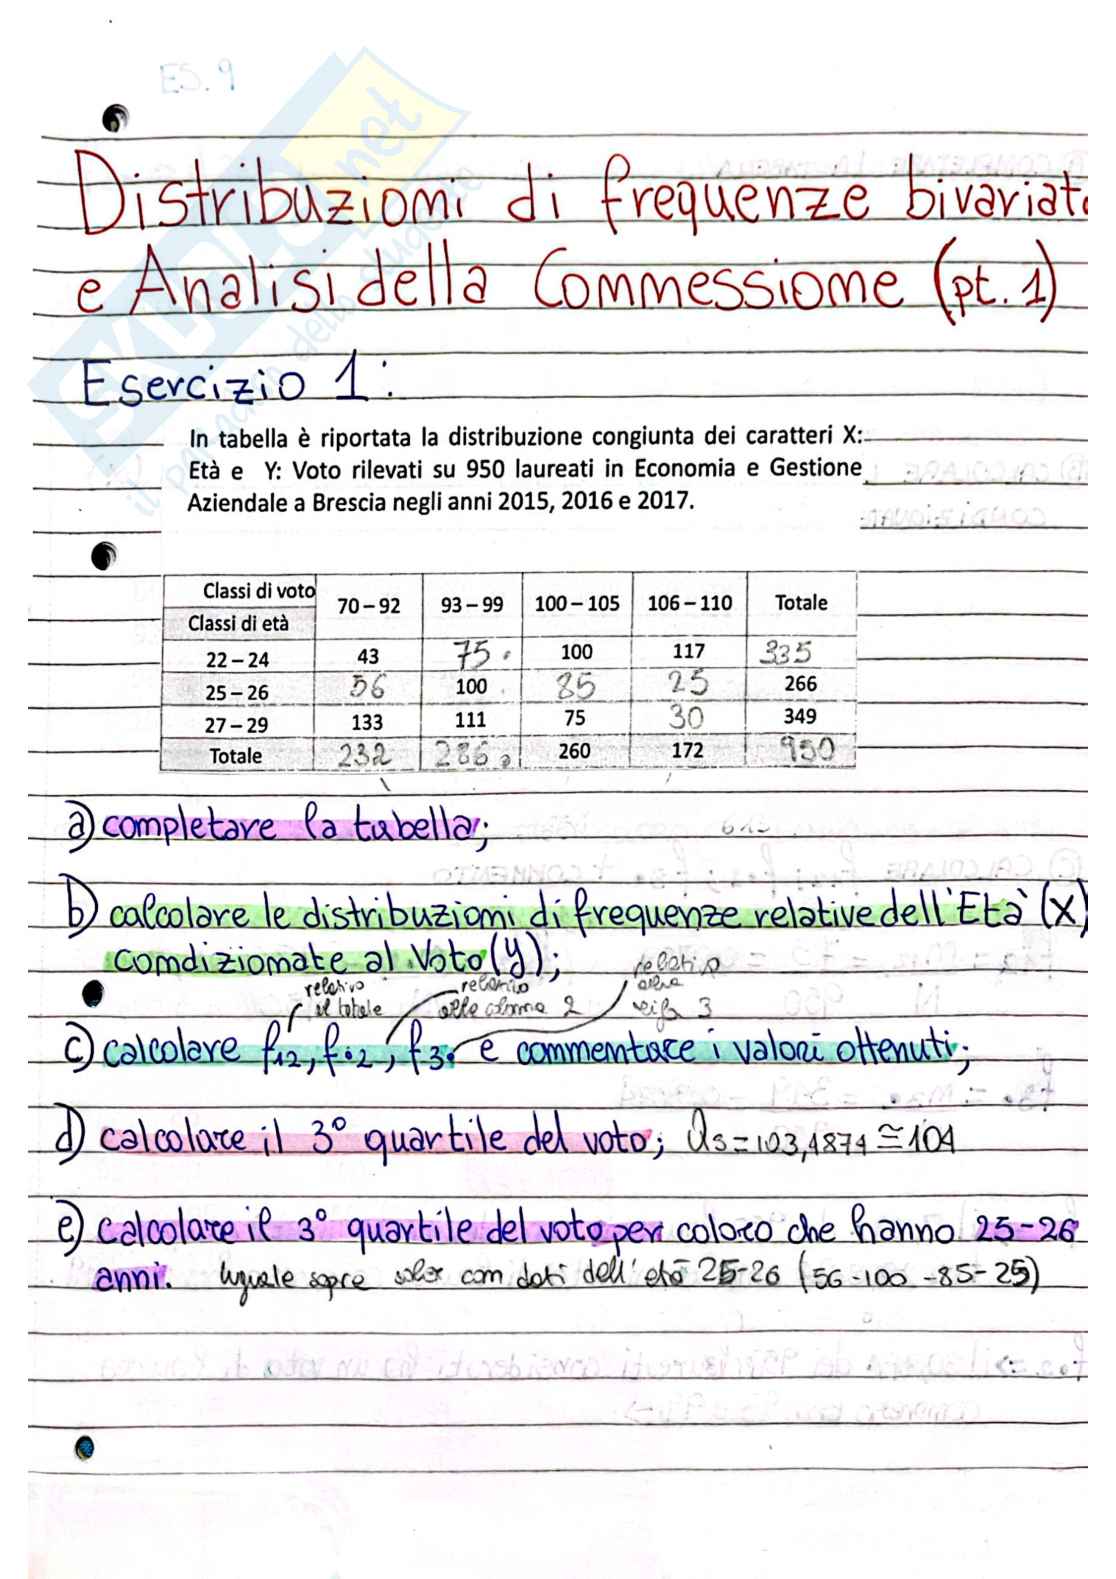 ES. 9
Distribuzioni di frequenze bivariate
e Analisi della Connessione (pt. 1)
Esercizio 1:
In tabella è riportata la distribuzione congiunta dei caratteri X:
Età e Y: Voto rilevati su 950 laureati in Economia e Gestione
Aziendale a Brescia negli anni 2015, 2016 e 2017.
Classi di voto 70 – 92 93 – 99 100 – 105 106 – 110 Totale
Classi di età
22 – 24 43 75 100 117 335
25 – 26 56 100 85 25 266
27 – 29 133 111 75 30 349
Totale 232 286 260 172 950
a) completare la tabella;
b) calcolare le distribuzioni di frequenze relative dell'Età (X)
condizionate al Voto (Y);
relativo al totale
relativo alla colonna 2
relativo alla riga 3
c) calcolare f12, f•2, f3• e commentare i valori ottenuti;
d) calcolare il 3° quartile del voto; Q3=103,4874 ≅ 104
e) calcolare il 3° quartile del voto per coloro che hanno 25-26
anni. Uguale sopra solo con dati dell'età 25-26 (56-100-85-25)
SKUOLA.net
il paradiso dello studente